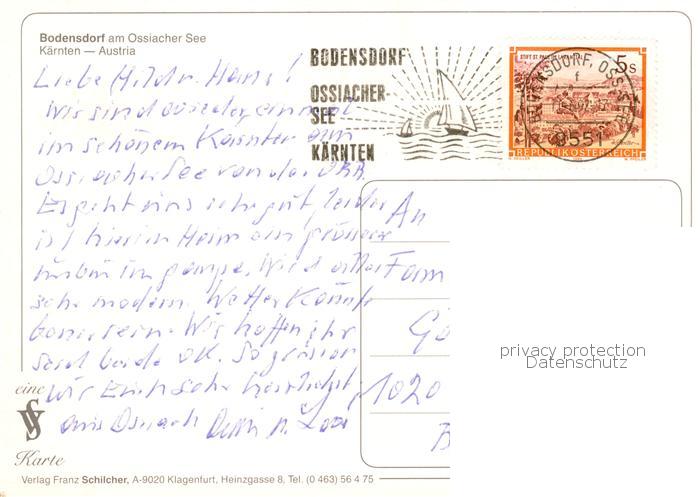 Bodensdorf am Ossiacher See
Kärnten — Austria
BODENSDORF
OSSIACHER-
SEE
KÄRNTEN
5 S
BODENSDORF OSS
9551
REPUBLIK ÖSTERREICH
Liebe Hans!
Wir sind wieder einmal
im schönen Kärnten am
Ossiacher See von der
Es geht uns sehr gut, leider
ist hier im Heim ein grösserer
Umbau im gange. Wird alles
sehr modern. Wetter könnte
besser sein. Wir hoffen ihr
seid beide OK. So grüssen
wir Euch sehr herzlichst
aus Ossiach
An
Fam
1020
eine
Karte
privacy protection
Datenschutz
Verlag Franz Schilcher, A-9020 Klagenfurt, Heinzgasse 8, Tel. (0 463) 56 4 75